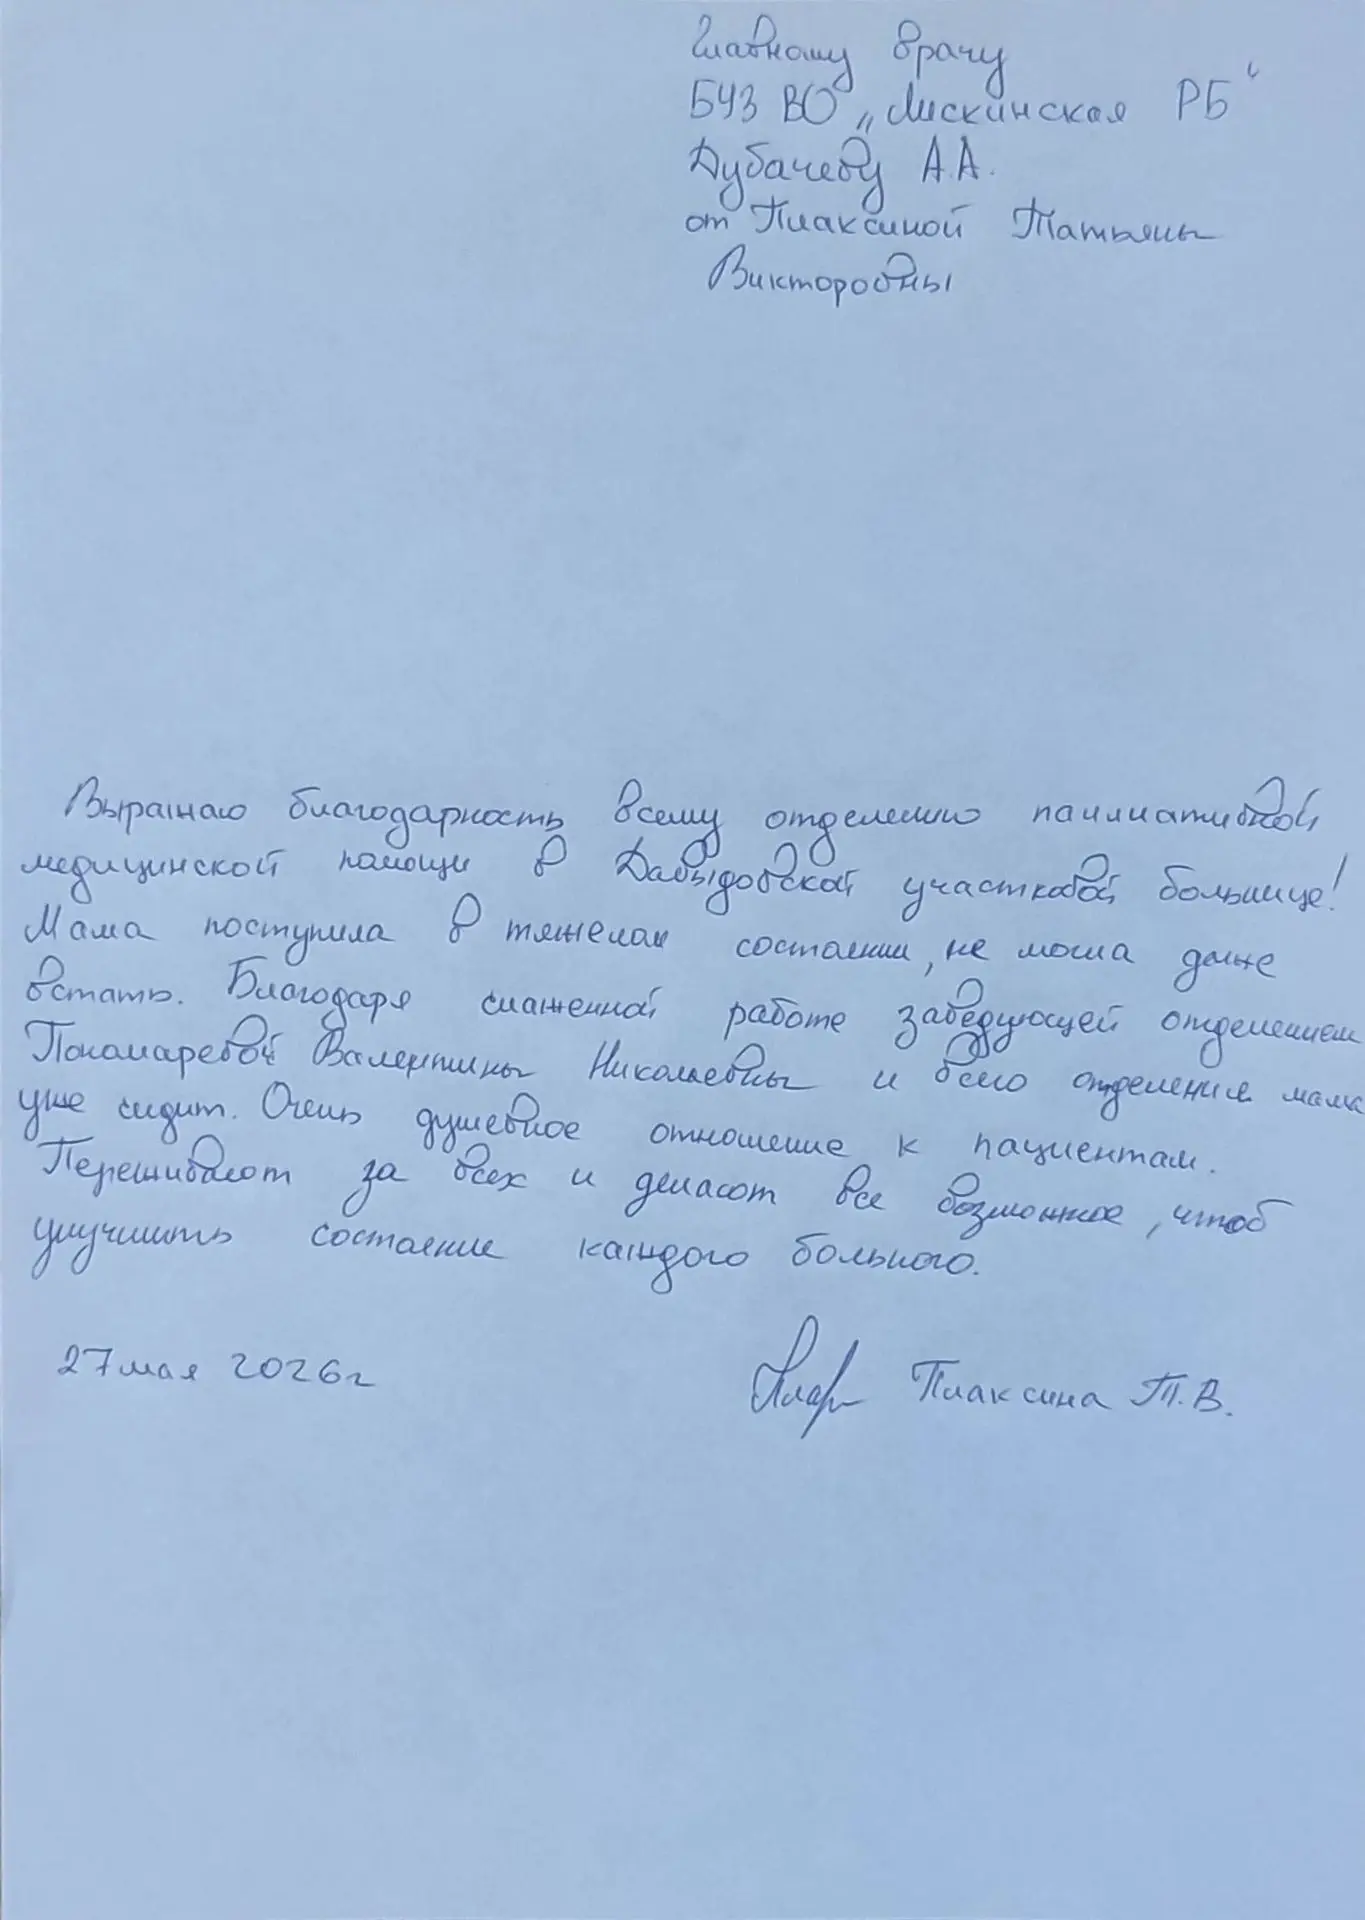 Главному врачу
БУЗ ВО „Лискинская РБ“
Дубачеву А.А.
от Плаксиной Татьяны
Викторовны
Выражаю благодарность всему отделению паллиативной
медицинской помощи в Давыдовской участковой больнице!
Мама поступила в тяжелом состоянии, не могла даже
встать. Благодаря слаженной работе заведующей отделением
Пономаревой Валентины Николаевны и всего отделения мама
уже сидит. Очень душевное отношение к пациентам.
Переживают за всех и делают все возможное, чтоб
улучшить состояние каждого больного.
27 мая 2026г
Плаксина Т.В.